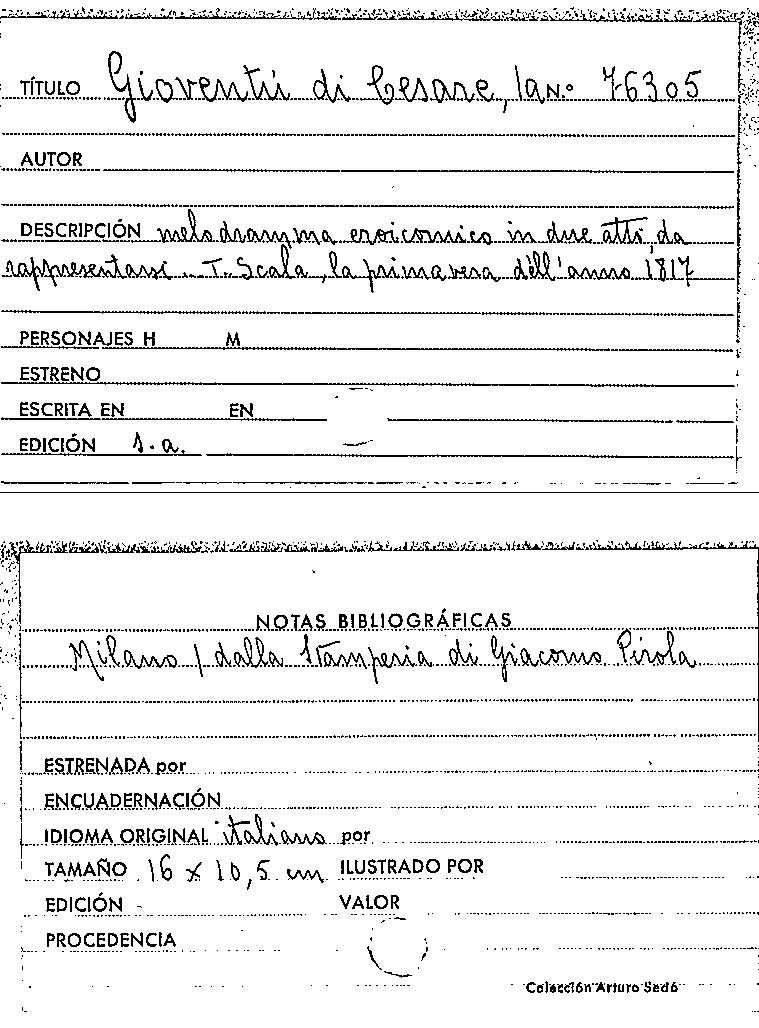 TÍTULO Gioventú di Cesare, la N.º 76305
AUTOR
DESCRIPCIÓN melodramma eroicomico in due atti, da
rappresentarsi.. T. Scala, la primavera dell'anno 1817
PERSONAJES H M
ESTRENO
ESCRITA EN EN
EDICIÓN s.a.
NOTAS BIBLIOGRÁFICAS
Milano / dalla Stamperia di Giacomo Pirola
ESTRENADA por
ENCUADERNACIÓN
IDIOMA ORIGINAL italiano por
TAMAÑO 16 x 10,5 cm ILUSTRADO POR
EDICIÓN - VALOR
PROCEDENCIA
Colección Arturo Sedó